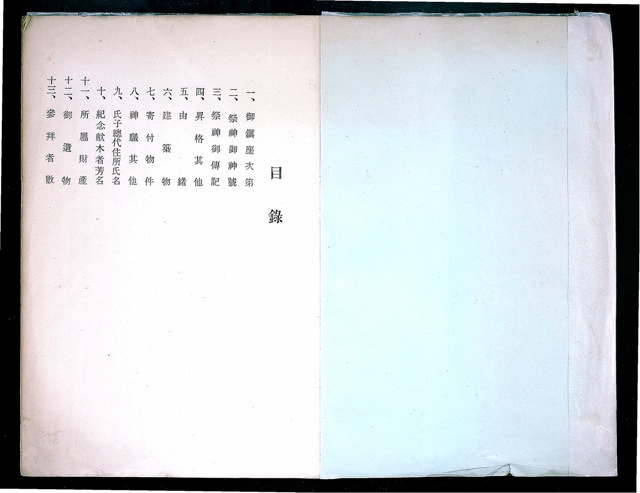 目錄
一、御鎭座次第
二、祭神御神號
三、祭神御傳記
四、昇格其他
五、由緖
六、建築物
七、寄付物件
八、神職其他
九、氏子總代住所氏名
十、紀念獻木者芳名
十一、所屬財產
十二、御遺物
十三、參拜者數